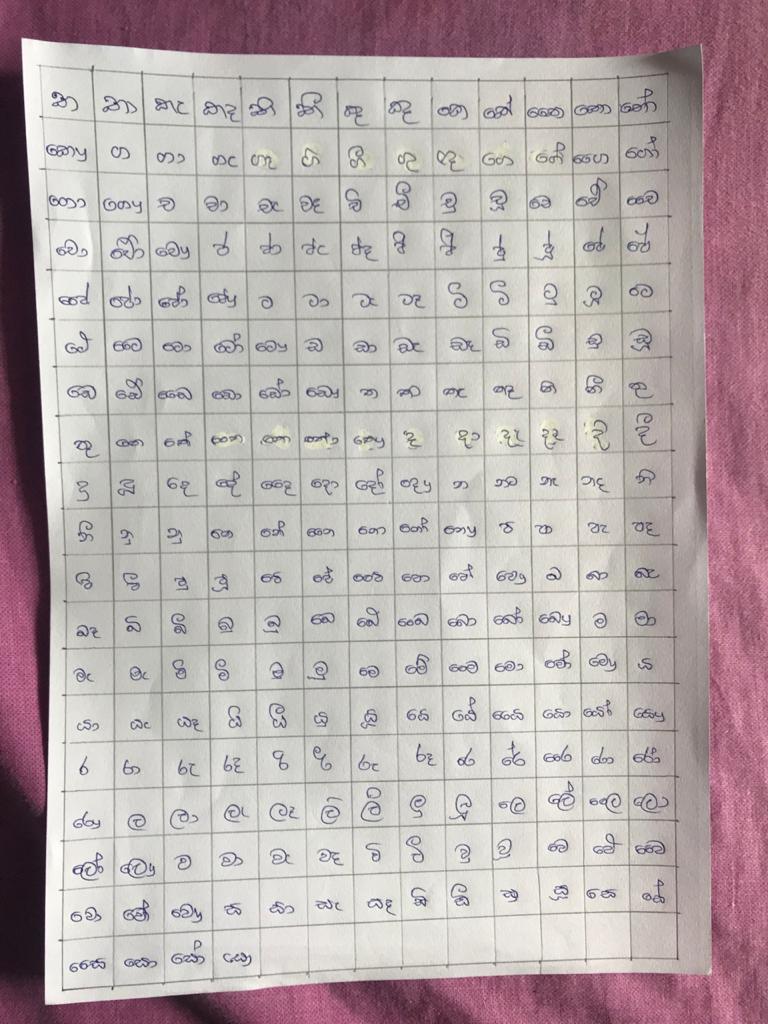 ක කා කැ කෑ කි කී කු කූ කෙ කේ කෛ කො කෝ
කෞ ග ගා ගැ ගෑ ගි ගී ගු ගූ ගෙ ගේ ගෛ ගෝ
ගො ගෞ ච චා චැ චෑ චි චී චු චූ චෙ චේ චෛ
චො චෝ චෞ ජ ජා ජැ ජෑ ජි ජී ජු ජූ ජෙ ජේ
ජෛ ජො ජෝ ජෞ ට ටා ටැ ටෑ ටි ටී ටු ටූ ටෙ
ටේ ටෛ ටො ටෝ ටෞ ඩ ඩා ඩැ ඩෑ ඩි ඩී ඩු ඩූ
ඩෙ ඩේ ඩෛ ඩො ඩෝ ඩෞ ත තා තැ තෑ ති තී තු
තූ තෙ තේ තෛ තො තෝ තෞ ද දා දැ දෑ දි දී
දු දූ දෙ දේ දෛ දො දෝ දෞ න නා නැ නෑ නි
නී නු නූ නෙ නේ නෛ නො නෝ නෞ ප පා පැ පෑ
පි පී පු පූ පෙ පේ පෛ පො පෝ පෞ බ බා බැ
බෑ බි බී බු බූ බෙ බේ බෛ බො බෝ බෞ ම මා
මැ මෑ මි මී මු මූ මෙ මේ මෛ මො මෝ මෞ ය
යා යැ යෑ යි යී යු යූ යෙ යේ යෛ යො යෝ යෞ
ර රා රැ රෑ රි රී රු රූ රෙ රේ රෛ රො රෝ
රෞ ල ලා ලැ ලෑ ලි ලී ලු ලූ ලෙ ලේ ලෛ ලො
ලෝ ලෞ ව වා වැ වෑ වි වී වු වූ වෙ වේ වෛ
වො වෝ වෞ ස සා සැ සෑ සි සී සු සූ සෙ සේ
සෛ සො සෝ සෞ